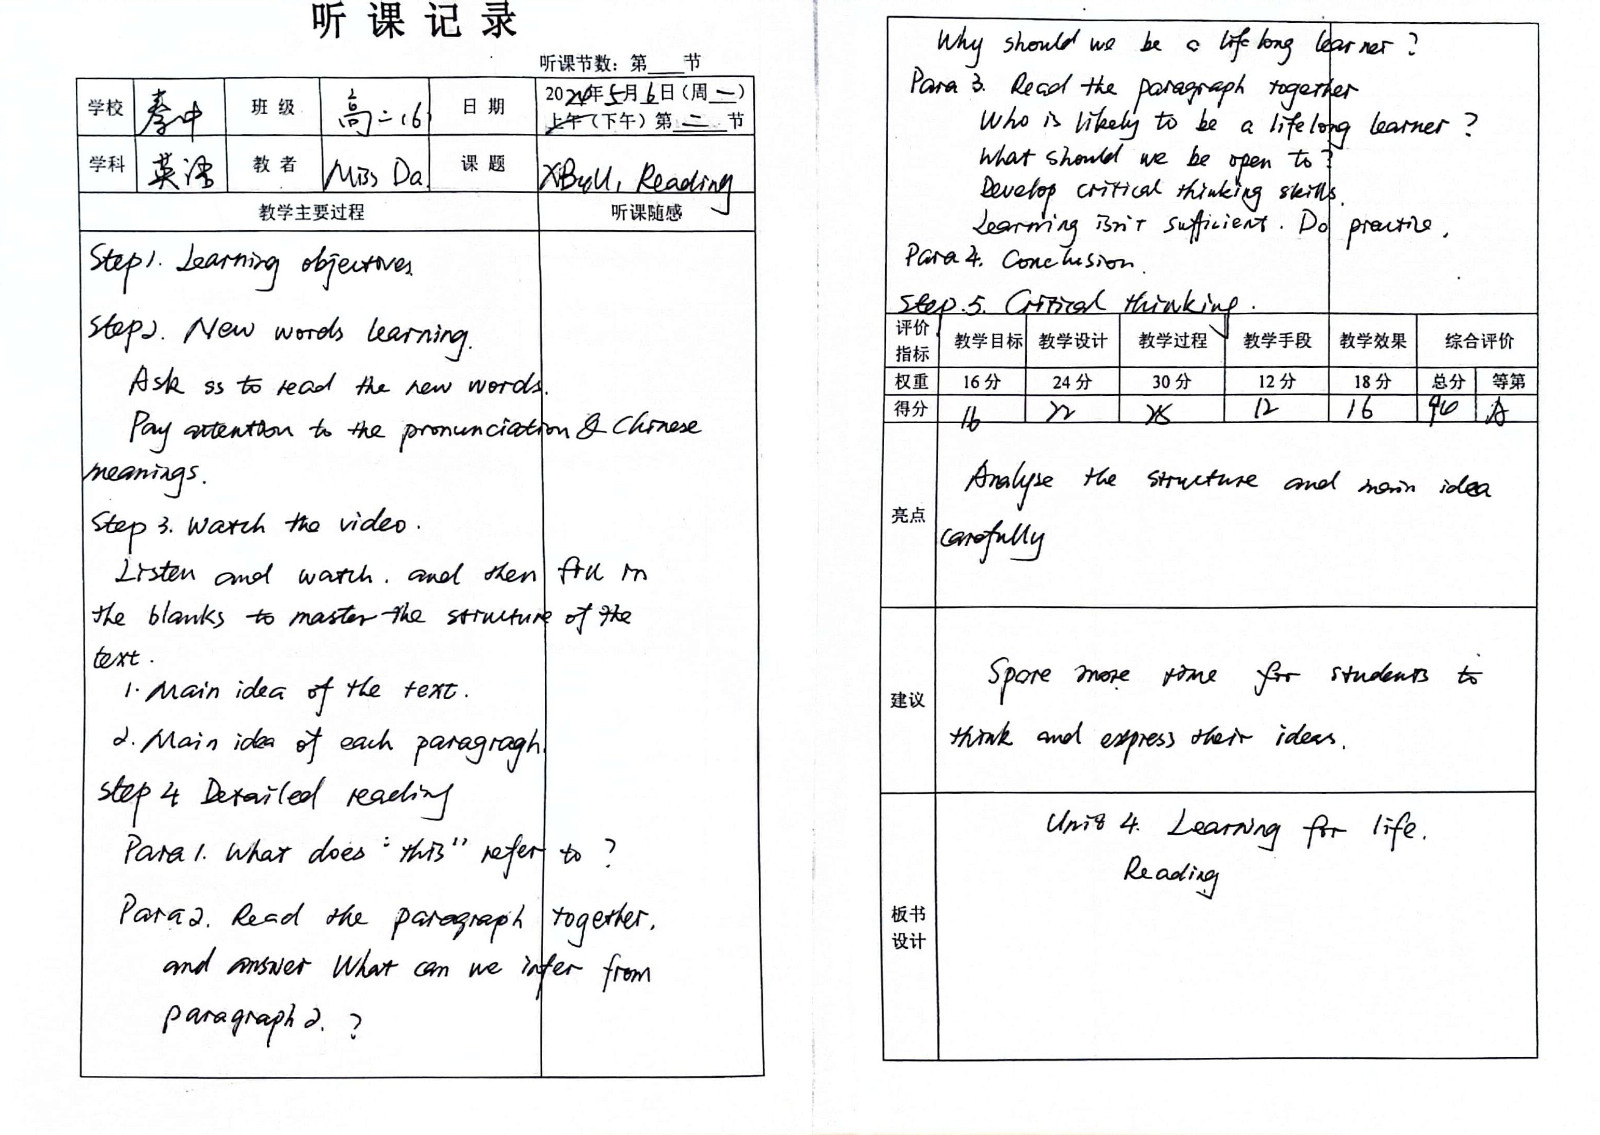 听课记录
听课节数：第___节
学校 秦中 班级 高二16 日期 2024年5月6日（周一）
上午（下午）第二节
学科 英语 教者 Miss Da 课题 XB4U1 Reading
教学主要过程 听课随感
Step1. Learning objectives
Step2. New words learning.
Ask ss to read the new words.
Pay attention to the pronunciation & Chinese
meanings.
Step 3. Watch the video.
Listen and watch. and then fill in
the blanks to master the structure of the
text.
1. Main idea of the text.
2. Main idea of each paragragh
Step 4 Detailed reading
Para 1. What does "this" refer to ?
Para 2. Read the paragraph together,
and answer What can we infer from
paragraph 2. ?
Why should we be a lifelong learner ?
Para 3. Read the paragraph together
Who is likely to be a lifelong learner ?
What should we be open to ?
Develop critical thinking skills.
Learning isn't sufficient. Do practice.
Para 4. Conclusion.
Step. 5. Critical thinking.
评价指标 教学目标 教学设计 教学过程 教学手段 教学效果 综合评价
权重 16分 24分 30分 12分 18分 总分 等第
得分 16 22 12 16 A
亮点
Analyse the structure and main idea
carefully
建议
Spare more time for students to
think and express their ideas.
板书设计
Unit 4. Learning for life.
Reading